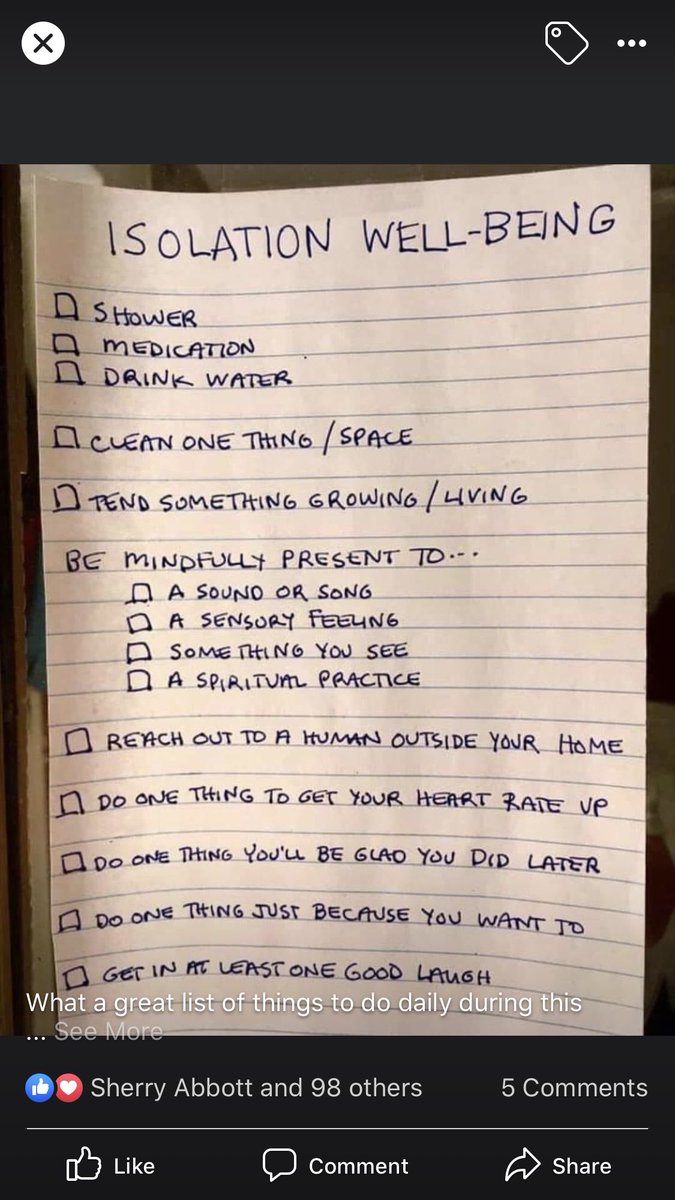 ISOLATION WELL-BEING
SHOWER
MEDICATION
DRINK WATER
CLEAN ONE THING / SPACE
TEND SOMETHING GROWING / LIVING
BE MINDFULLY PRESENT TO...
A SOUND OR SONG
A SENSORY FEELING
SOMETHING YOU SEE
A SPIRITUAL PRACTICE
REACH OUT TO A HUMAN OUTSIDE YOUR HOME
DO ONE THING TO GET YOUR HEART RATE UP
DO ONE THING YOU'LL BE GLAD YOU DID LATER
DO ONE THING JUST BECAUSE YOU WANT TO
GET IN AT LEAST ONE GOOD LAUGH
What a great list of things to do daily during this
... See More
Sherry Abbott and 98 others 5 Comments
Like Comment Share